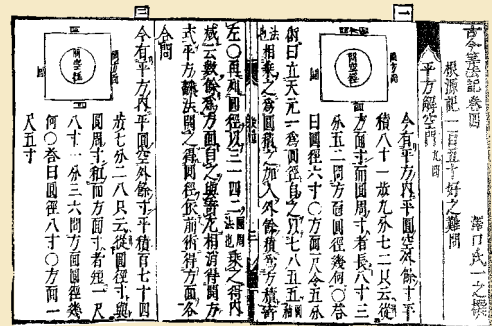 古今算法記巻四
根源記一百五十好之難問 澤口氏一之撰
平方解空門 九問
一
問空徑
今有平方内平圓空外餘寸平
積八十一歩九分七二只云從
方面寸而圓周寸者長八寸三
分五二問方面圓徑幾何〇荅
曰圓徑六寸〇方面一尺令五分
術曰立天元一爲圓徑自之以七八五五
法相乗之爲圓積寸加入外餘積爲方積寄
左〇再列圓徑以三一四二乗之得内
減云數餘爲方面自之與寄左相消得開方
式平方飜法開之得圓徑依前術得方面各
合問
三
問空徑
今有平方内平圓空外餘寸平積百七十四
歩七分二八只云從圓徑寸與
圓周寸和而方面寸者短一尺
八寸一分三六問方面圓徑幾
何〇荅曰圓徑八寸〇方面一
尺五寸